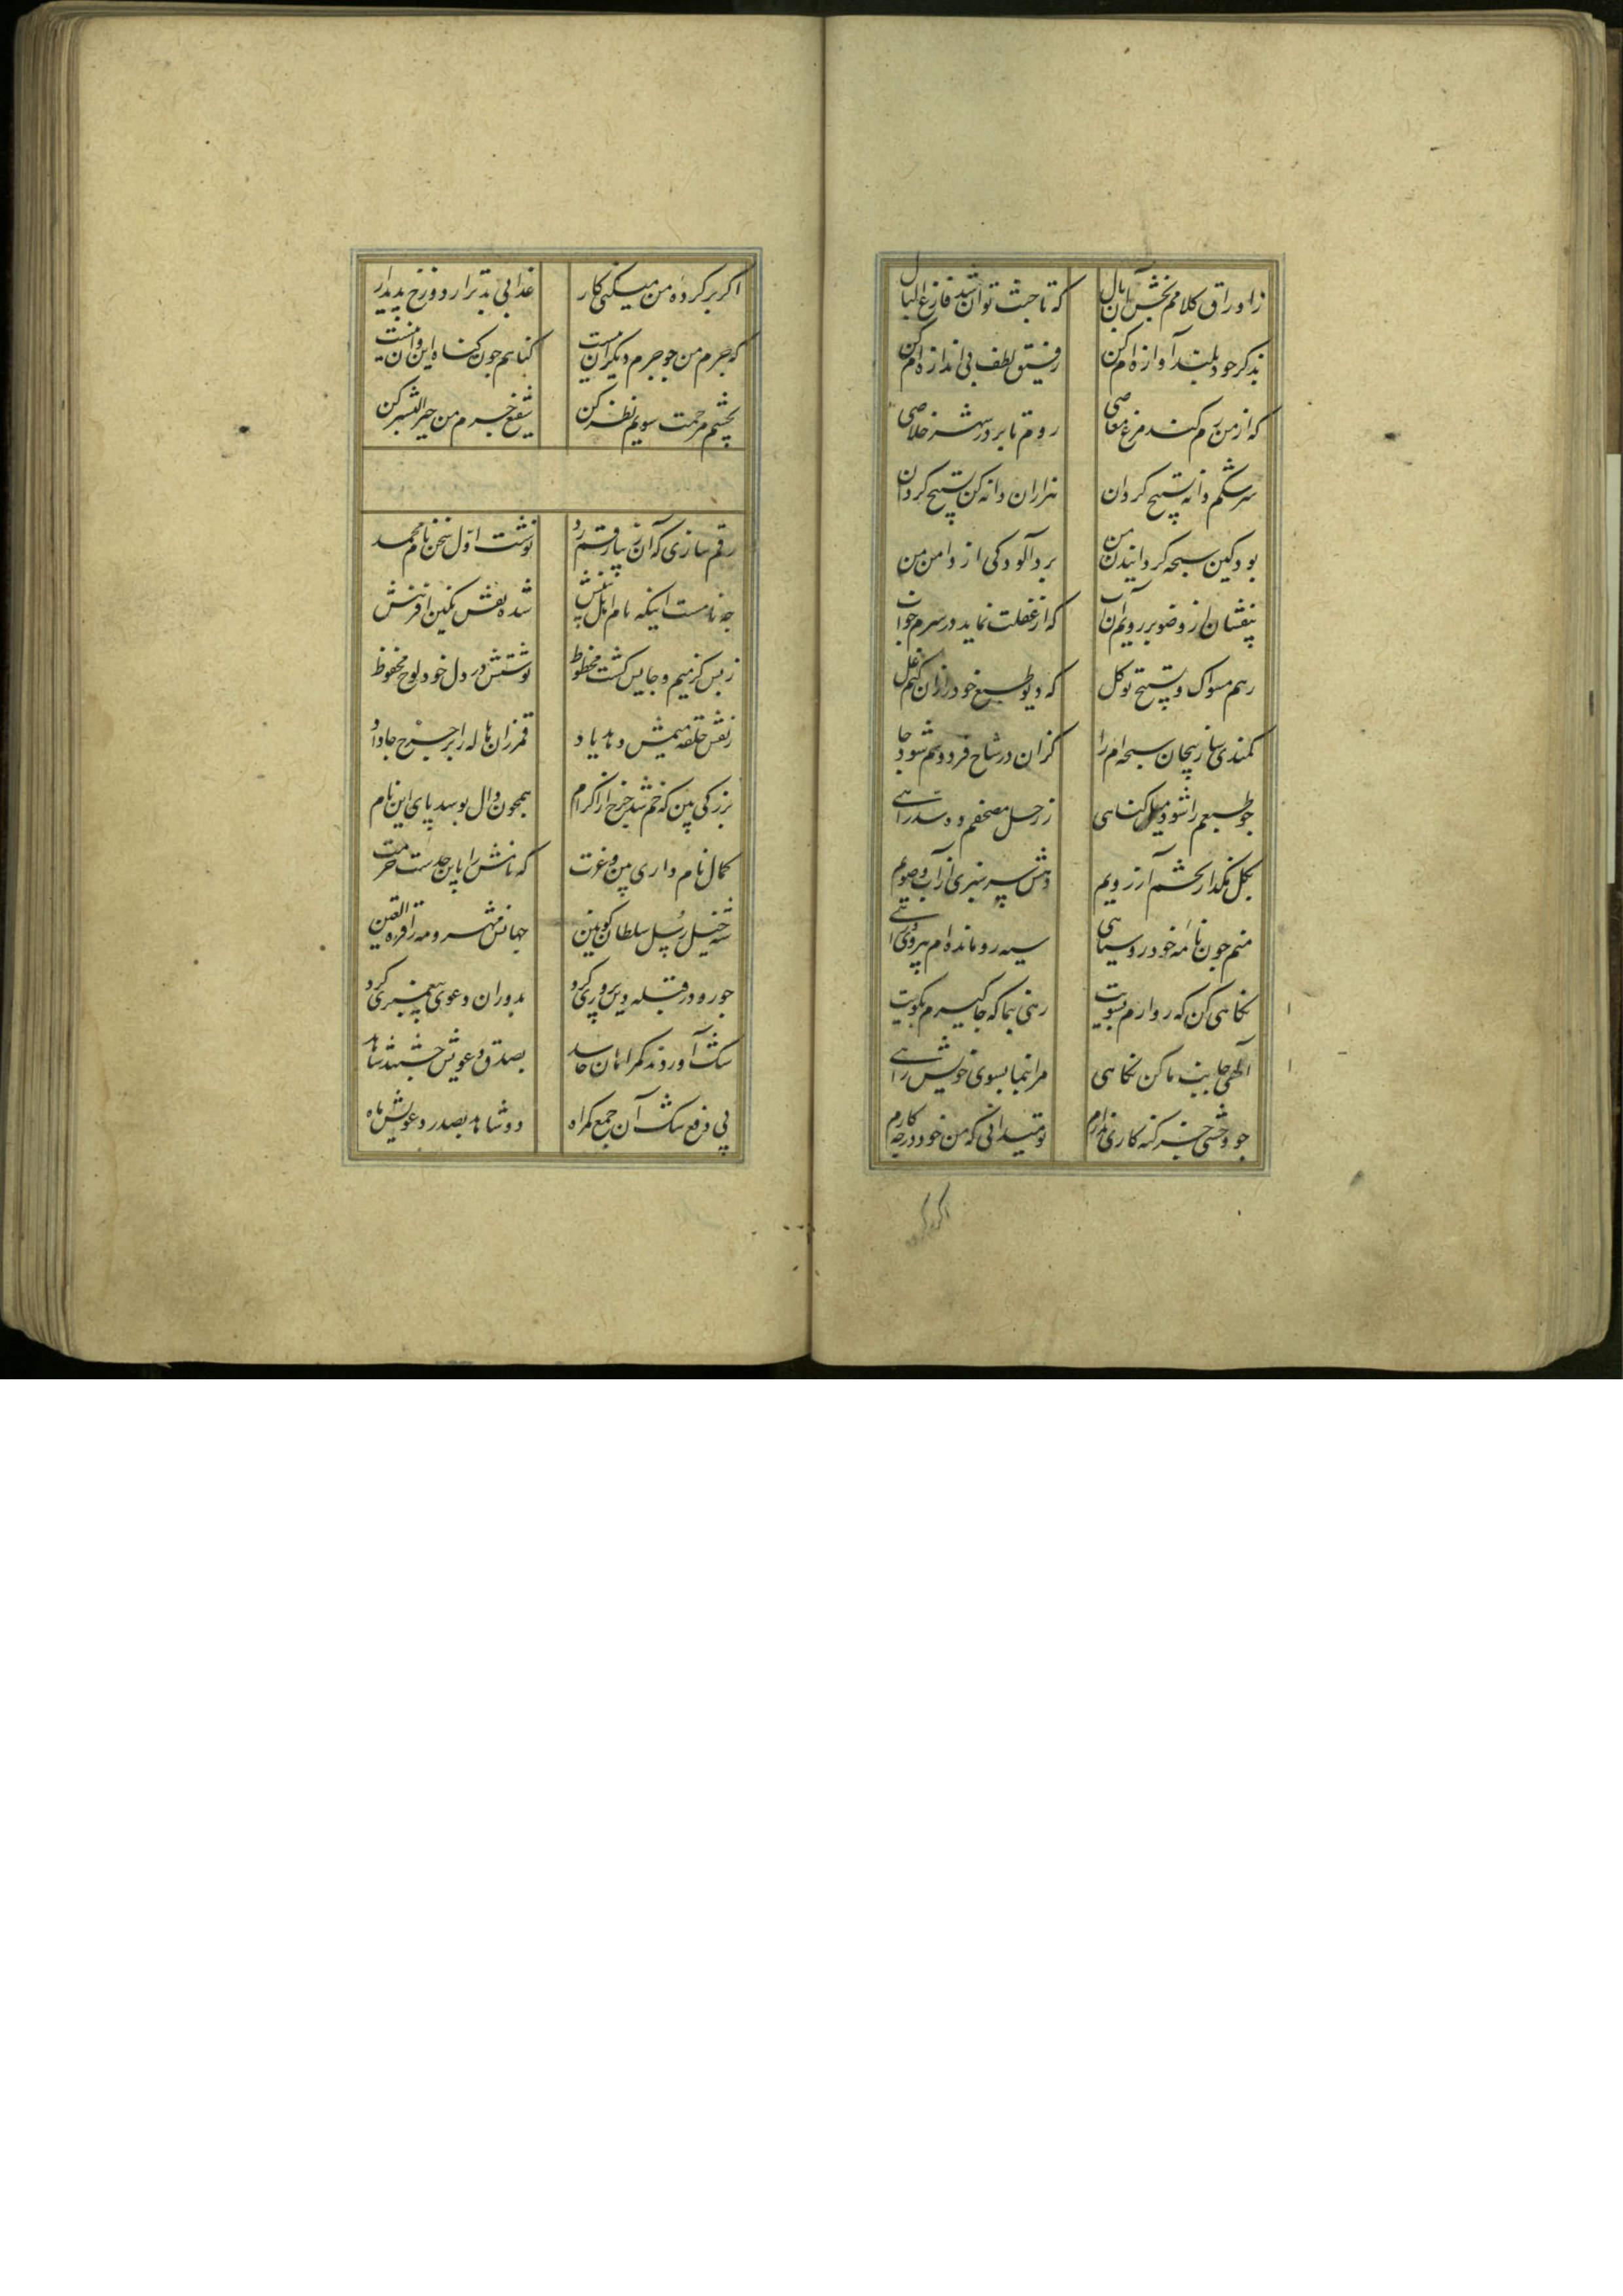 ز اوراق کلامم بخش آن بال که تا جنت توان شد فارغ البال
بذکر خود بلند آوازه ام کن رفیق لطف بی اندازه ام کن
که از من رم کند مرغ معاصی روم تا بر در شهر خلاصی
سرشکم دانه تسبیح کردان هزاران دانه کن تسبیح کردان
بود کین سبحه کردانیدن من برد آلودکی از دامن من
بیفشان از وضو بر رویم آن آب که از غفلت نماید در سرم خواب
رهم مسواک و تسبیح توکل که دیو طبع خود را زان کنم غل
کمندی ساز پیچان سبحه ام را کزان در شاخ فردوسم شود جا
جو طبعم را شود میل کناهی ز رحل مصحفم ده سد راهی
بکل مکذار بخشم آرزویم دهش سرسبزی از آب وضویم
منم جون نامه خود رو سیاهی سیه رو مانده ام بی رو براهی
نکاهی کن که رو آرم بسویت رهی بنما که جا کیرم بکویت
الهی جانب ما کن نکاهی مرا بنما بسوی خویش راهی
جو وحشی جز کنه کاری ندارم تو میدانی که من خود درجه کارم
اکر بر کرده
اکر بر کرده من میکنی کار عذابی بدتر از دوزخ پدید آر
که جرم من جو جرم دیکران نیست کناهم جون کناه این و آن نیست
بچشم مرحمت سویم نظر کن شفیع جرم من خیر البشر کن
رقم سازی که این زیبا رقم زد نوشت اول سخن نام محمد
جه نامست اینکه نام اهل بینش شده نقش نکین آفرینش
ز بس کز میم و حایش کشت محظوظ نوشتش در دل خود لوح محفوظ
ز نقش حلقه میمش دهد یاد قمر زان هاله را بر جرخ جا داد
بزرکی بین که خم شد جرخ از اکرام همجون دال بوسد پای این نام
کمال نامداری بین و عزت که نامش را باین حدست حرمت
شه خیل رسل سلطان کونین جمالش مهر و مه را قرة العین
جو رو در قبله دین پروری کرد بدوران دعوی پیغمبری کرد
بشک آوردند کمراهان حاسد بصدق دعویش جستند شاهد
پی دفع شک آن جمع کمراه دو شاهد بصدر دعویش ماه